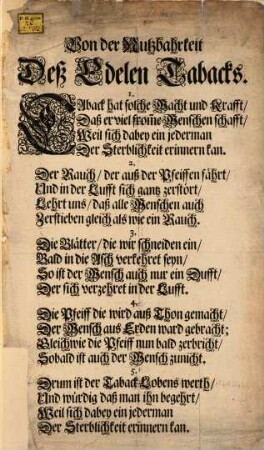 Von der Nutzbahrkeit
Deß Edelen Tabacks.
1.
TAback hat solche Macht und Krafft/
Daß er viel from̃e Menschen schafft/
Weil sich dabey ein jederman
Der Sterblichkeit erinnern kan.
2.
Der Rauch/ der auß der Pfeiffen fährt/
Und in der Lufft sich gantz zerstört/
Lehrt uns/ daß alle Menschen auch
Zerstieben gleich als wie ein Rauch.
3.
Die Blätter/ die wir schneiden ein/
Bald in die Asch verkehret seyn/
So ist der Mensch auch nur ein Dufft/
Der sich verzehret in der Lufft.
4.
Die Pfeiff die wird auß Thon gemacht/
Der Mensch aus Erden ward gebracht;
Gleichwie die Pfeiff nun bald zerbricht/
Sobald ist auch der Mensch zunicht.
5.
Drum ist der Taback Lobens werth/
Und würdig daß man ihn begehrt/
Weil sich dabey ein jederman
Der Sterblichkeit erinnern kan.